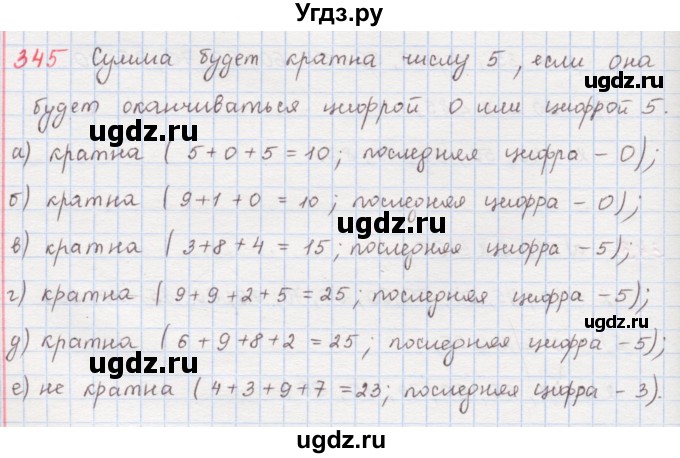 Угдз.ру
345 Сумма будет кратна числу 5, если она
будет оканчиваться цифрой 0 или цифрой 5.
ugdz.ru ugdz.ru
а) кратна (5+0+5=10; последняя цифра - 0);
б) кратна (9+1+0=10; последняя цифра - 0);
ugdz.ru
в) кратна (3+8+4=15; последняя цифра - 5);
ugdz.ru
г) кратна (9+9+2+5=25; последняя цифра - 5);
ugdz.ru
д) кратна (6+9+8+2=25; последняя цифра - 5);
ugdz.ru
е) не кратна (4+3+9+7=23; последняя цифра - 3).
ugdz.ru